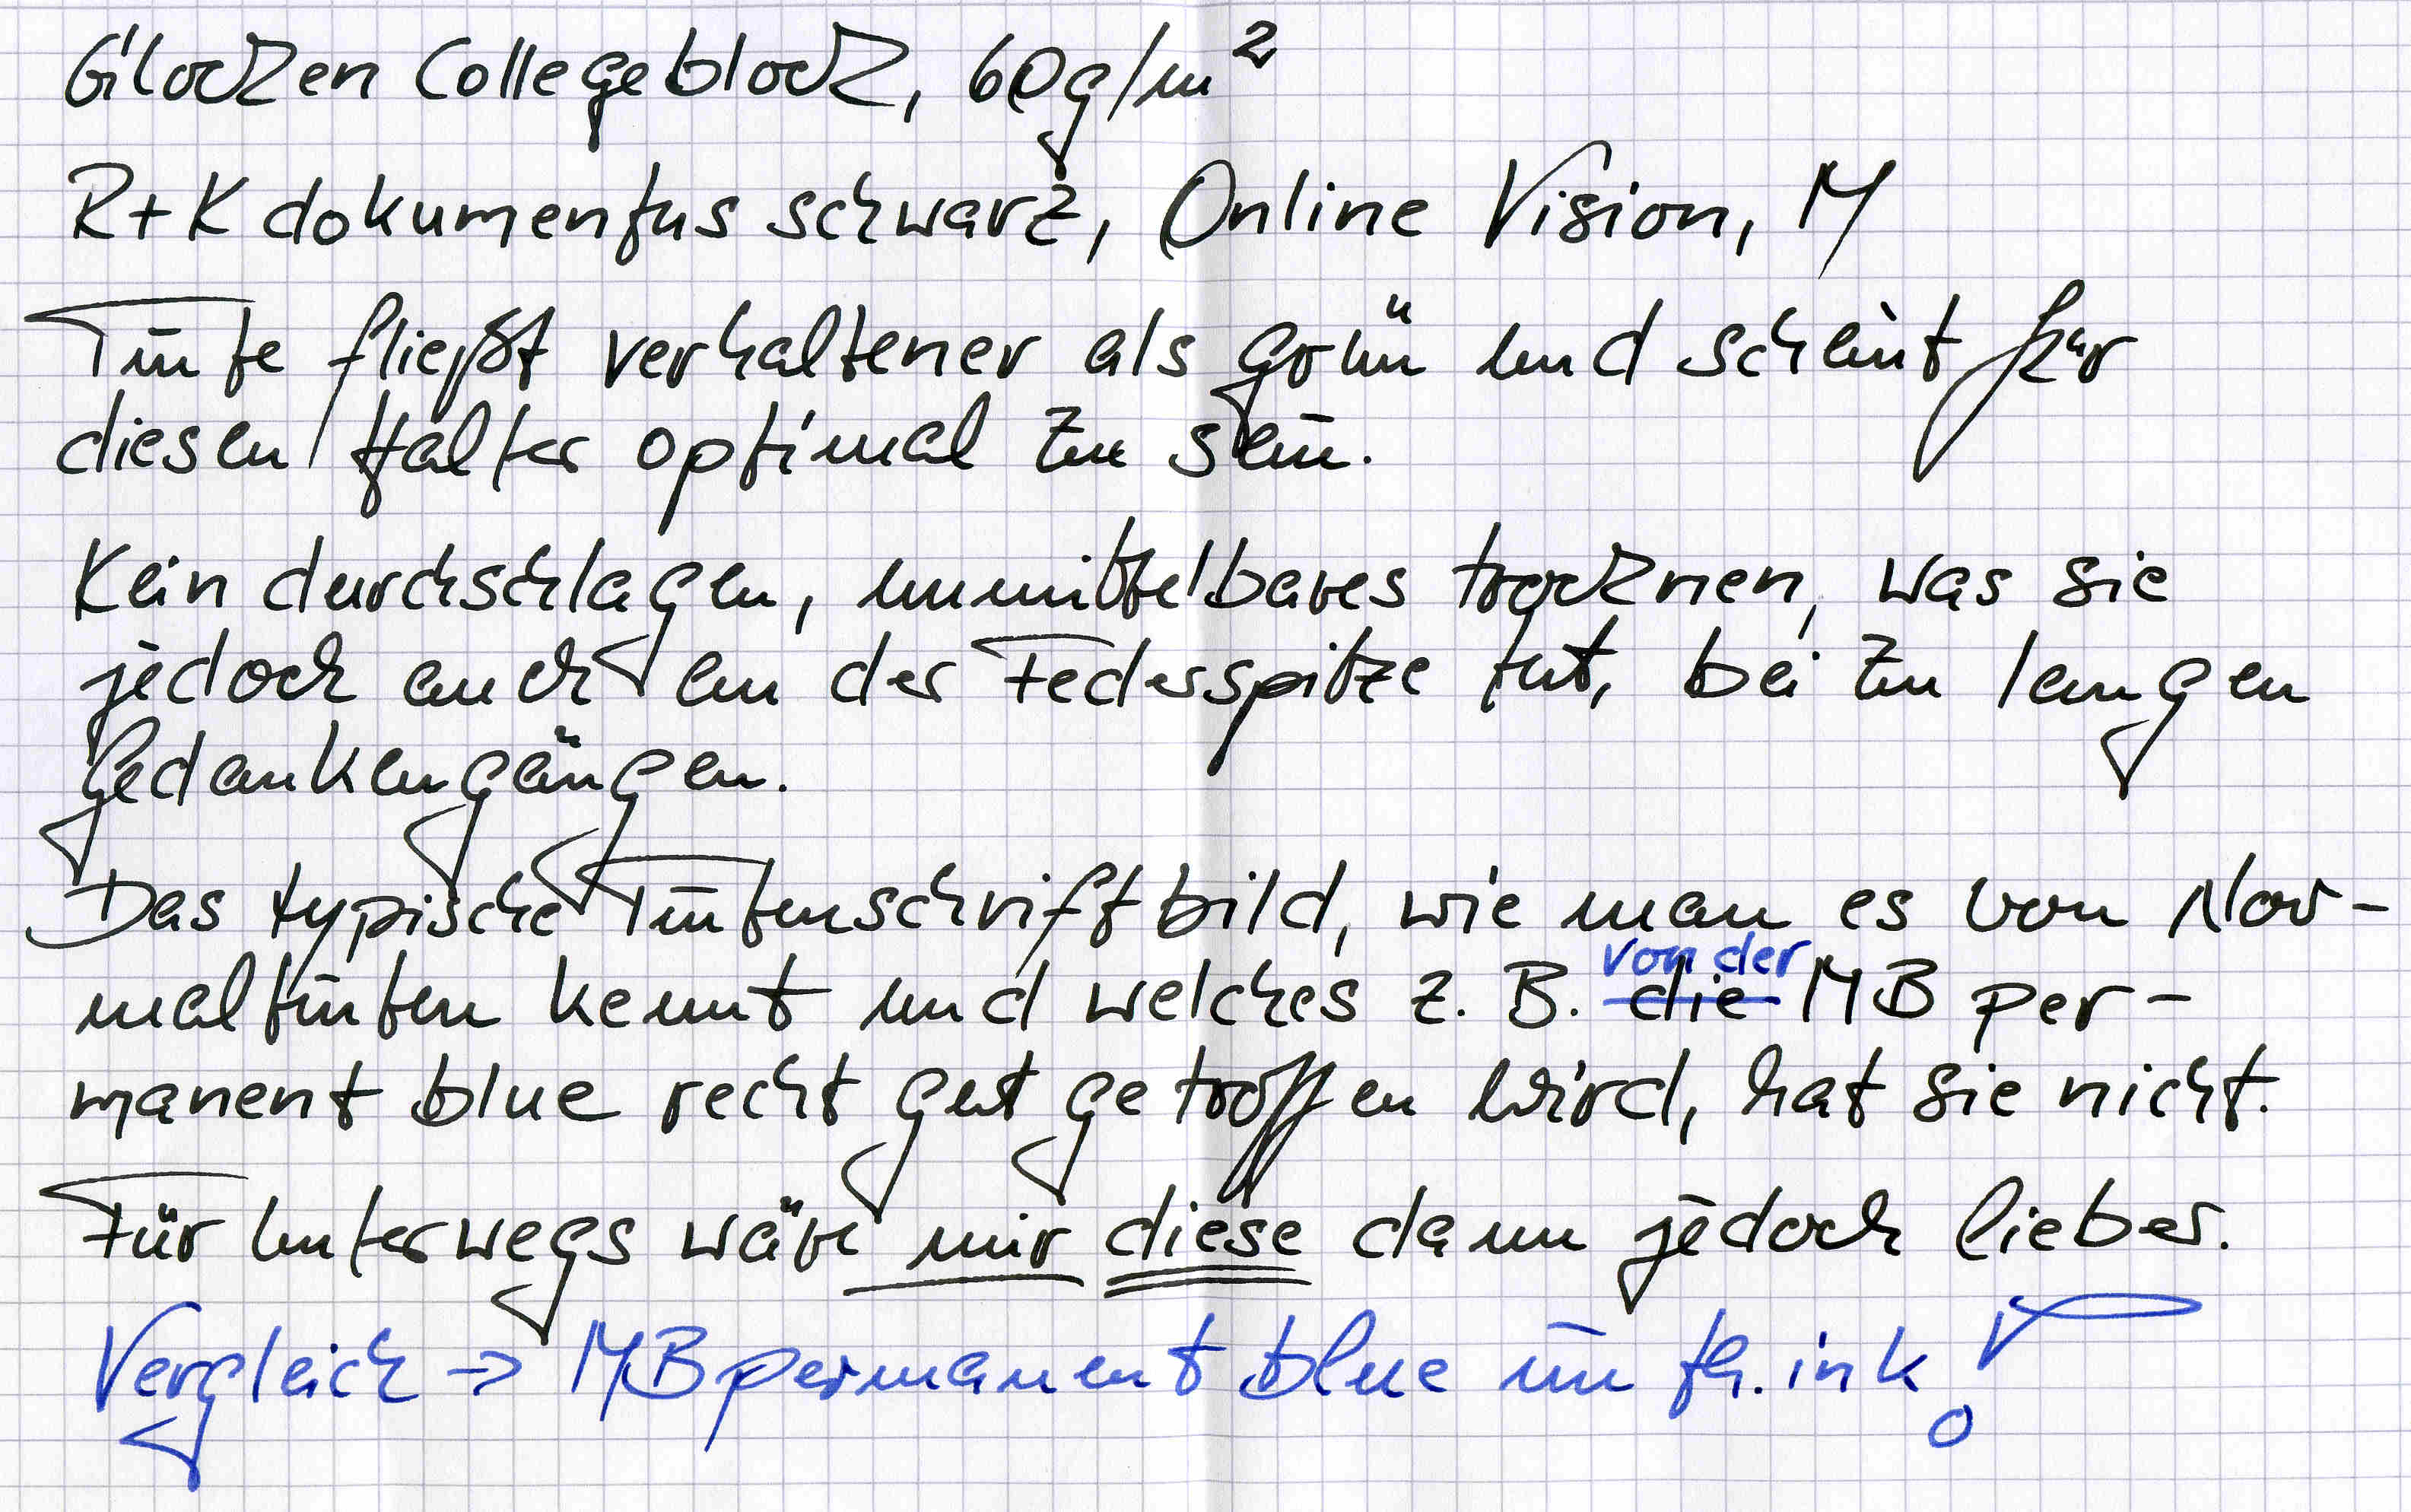 Glocken Collegeblock, 60g/m²
R+K dokumentus schwarz, Online Vision, M
Tinte fließt verhaltener als grün und scheint für
diesen Halter optimal zu sein.
Kein durchschlagen, unmittelbares trocknen, was sie
jedoch auch an der Federspitze tut, bei zu langen
Gedankengängen.
Das typische Tintenschriftbild, wie man es von Nor-
von der
maltinten kennt und welches z. B. die MB per-
manent blue recht gut getroffen wird, hat sie nicht.
Für Unterwegs wäre mir diese dann jedoch lieber.
Vergleich → MB permanent blue im fh. ink!